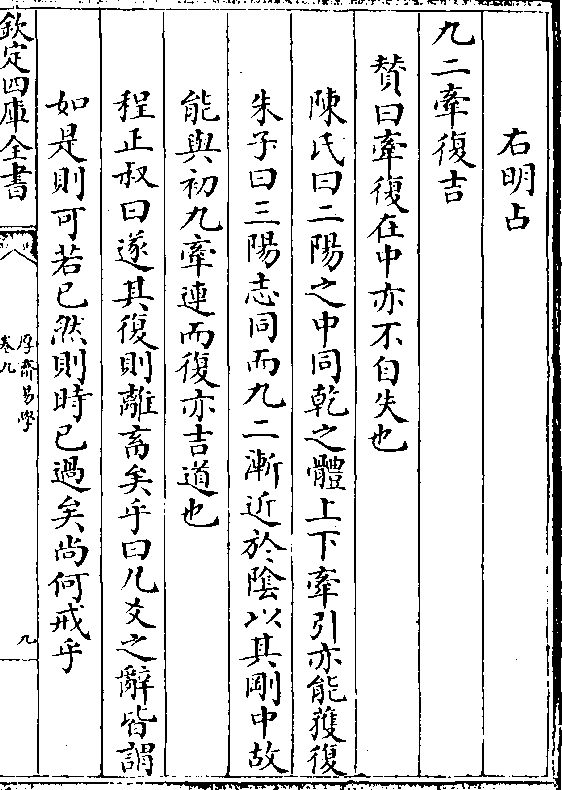 右明占
九二牽復吉
贊曰牽復在中亦不自失也
陳氏曰二陽之中同乾之體上下牽引亦能獲復
朱子曰三陽志同而九二漸近於陰以其剛中故
能與初九牽連而復亦吉道也
程正叔曰遂其復則離畜矣乎曰凡爻之辭皆謂
如是則可若已然則時已過矣尚何戒乎
欽定四庫全書
厚齋易學
卷九
九